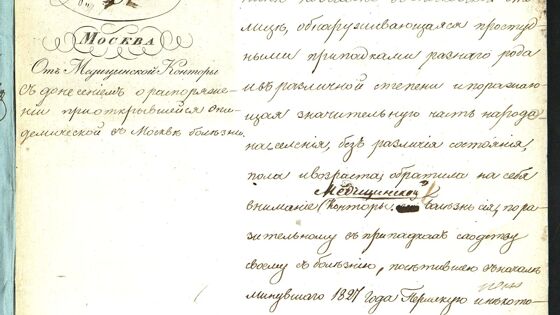 Москва
Отъ Медицинской Конторы
съ донесеніемъ о распоряже-
ніи при открывшейся эпи-
демической въ Москвѣ болѣзни.
лицѣ, обнаруживающаяся простуд-
ными припадками разнаго рода
и въ различной степени и поражаю-
щая значительную часть народо-
населенія, безъ различія состоянія,
пола и возраста, обратила на себя
Медицинской
вниманіе Конторы. болѣзнь сія, пора-
зительному въ припадкахъ сходству
своему съ болѣзнію, посѣтившею въ началѣ
минувшаго 1827 года Пермскую и нѣкото-